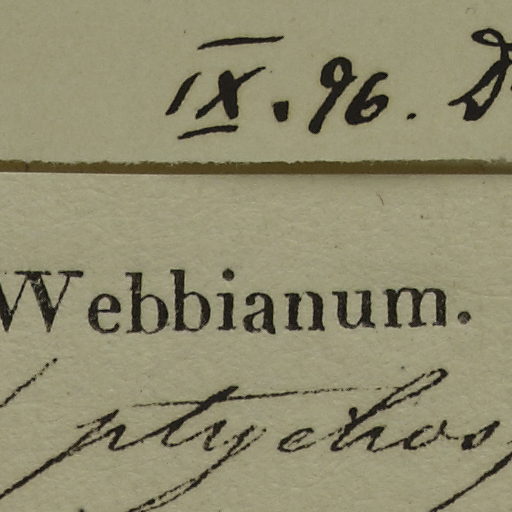 IX.96. D
Webbianum.
ptychos